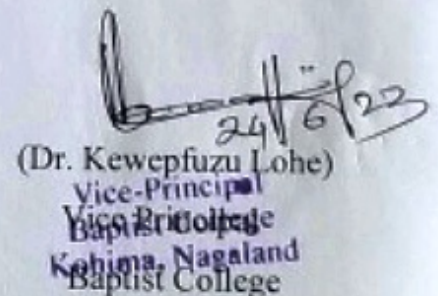 24/6/22
(Dr. Kewepfuzu Lohe)
Vice-Principal
Vice Principal
Baptist College
Kohima, Nagaland
Baptist College